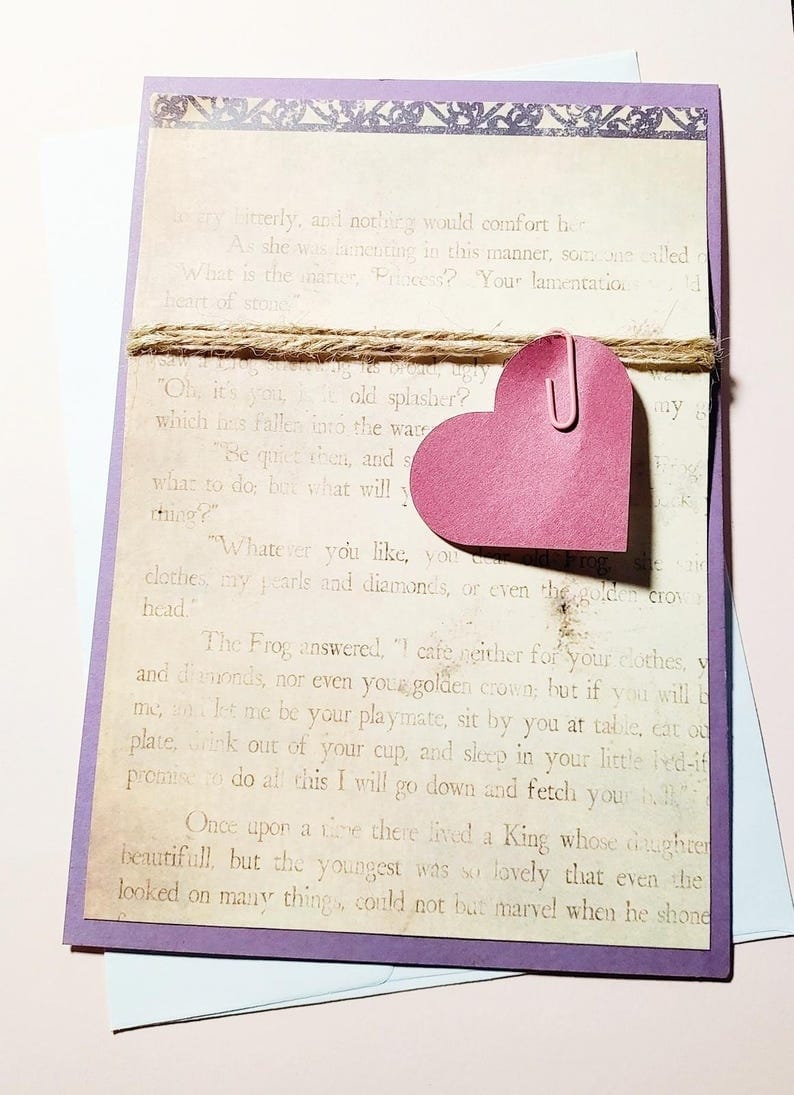 to cry bitterly, and nothing would comfort her
As she was lamenting in this manner, someone called o
"What is the matter, Princess? Your lamentations would
heart of stone."
saw a Frog stretching its broad, ugly
"Oh, it's you, is it, old splasher? my g
which has fallen into the water
"Be quiet then, and s Frog,
what to do; but what will y back
thing?"
"Whatever you like, you dear old Frog, she said
clothes, my pearls and diamonds, or even the golden crown
head."
The Frog answered, "I care neither for your clothes, y
and diamonds, nor even your golden crown; but if you will b
me, and let me be your playmate, sit by you at table, eat ou
plate, drink out of your cup, and sleep in your little bed-if
promise to do all this I will go down and fetch your ball."
Once upon a time there lived a King whose daughter
beautifull, but the youngest was so lovely that even the
looked on many things, could not but marvel when he shone